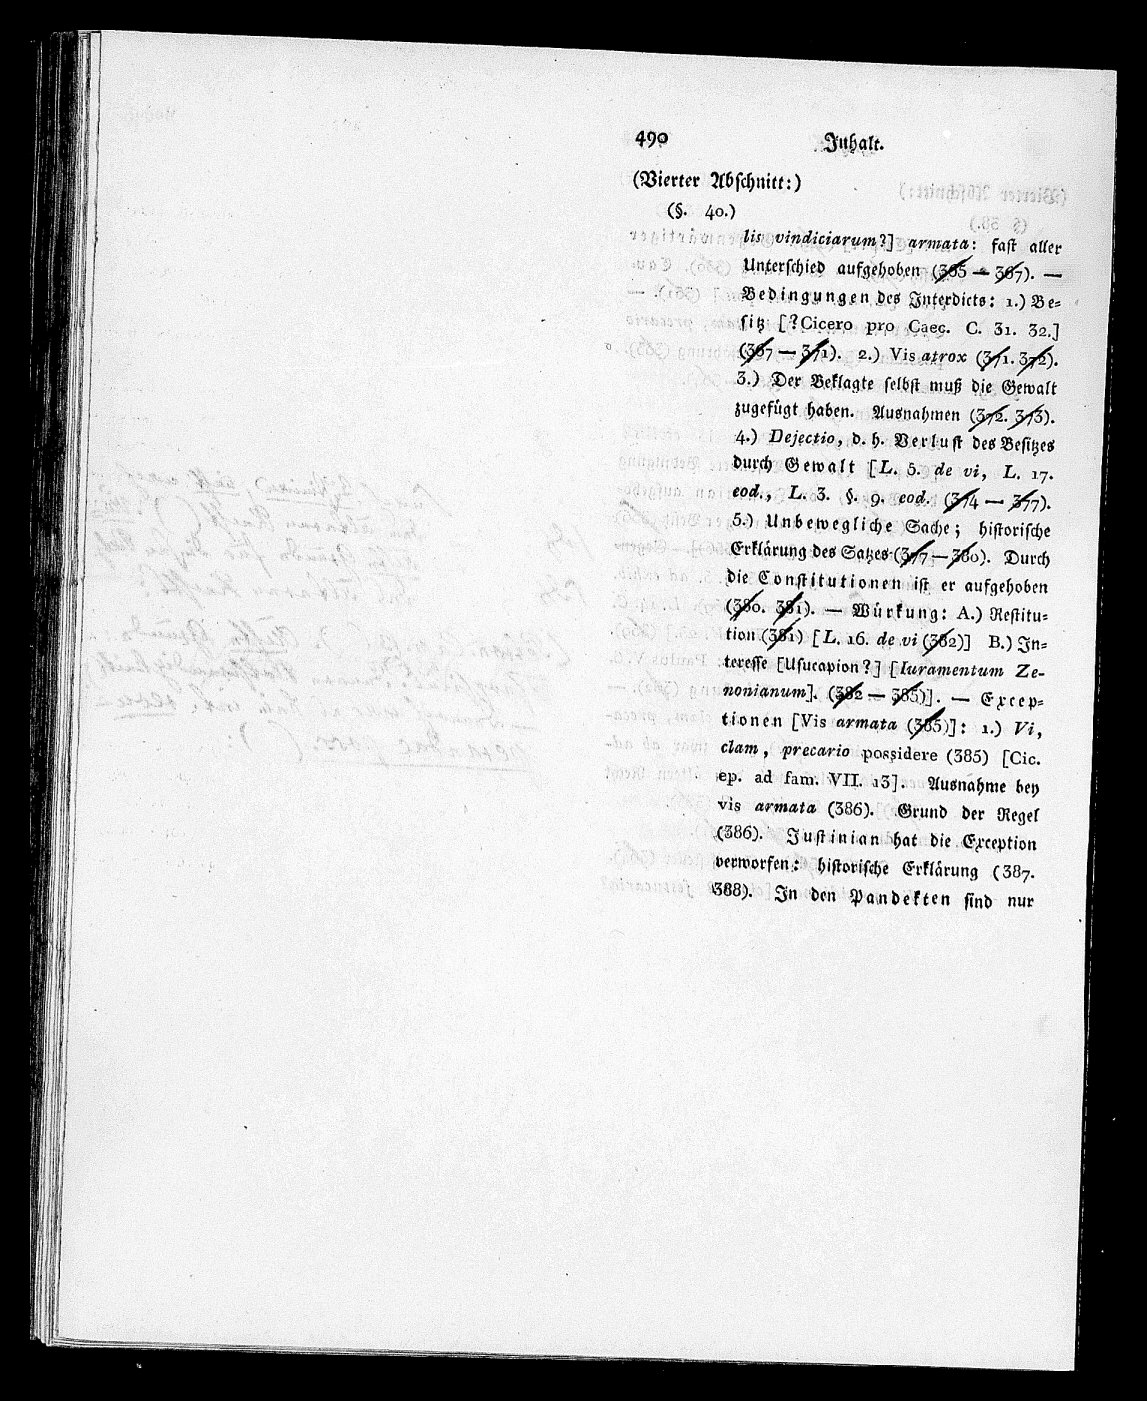 490 Inhalt.
(Vierter Abschnitt:)
(§. 40.)
lis vindiciarum?] armata: fast aller
Unterschied aufgehoben (365 — 367). —
Bedingungen des Interdicts: 1.) Be-
sitz [?Cicero pro Caec. C. 31. 32.]
(367 — 371). 2.) Vis atrox (371. 372).
3.) Der Beklagte selbst muß die Gewalt
zugefügt haben. Ausnahmen (372. 373).
4.) Dejectio, d. h. Verlust des Besitzes
durch Gewalt [L. 5. de vi, L. 17.
eod., L. 3. §. 9. eod. (374 — 377).
5.) Unbewegliche Sache; historische
Erklärung des Satzes (377 — 380). Durch
die Constitutionen ist er aufgehoben
(380. 381). — Würkung: A.) Restitu-
tion (381) [L. 16. de vi (382)] B.) In-
teresse [Usucapion?] [Iuramentum Ze-
nonianum]. (382 — 385)]. — Excep-
tionen [Vis armata (385)]: 1.) Vi,
clam, precario possidere (385) [Cic.
ep. ad fam. VII. 13]. Ausnahme bey
vis armata (386). Grund der Regel
(386). Justinian hat die Exception
verworfen: historische Erklärung (387.
388). In den Pandekten sind nur